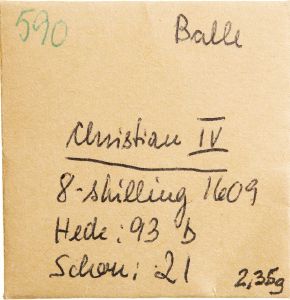 590 Balle
Christian IV
8-skilling 1609
Hede: 93 B
Schou: 21
2,35g